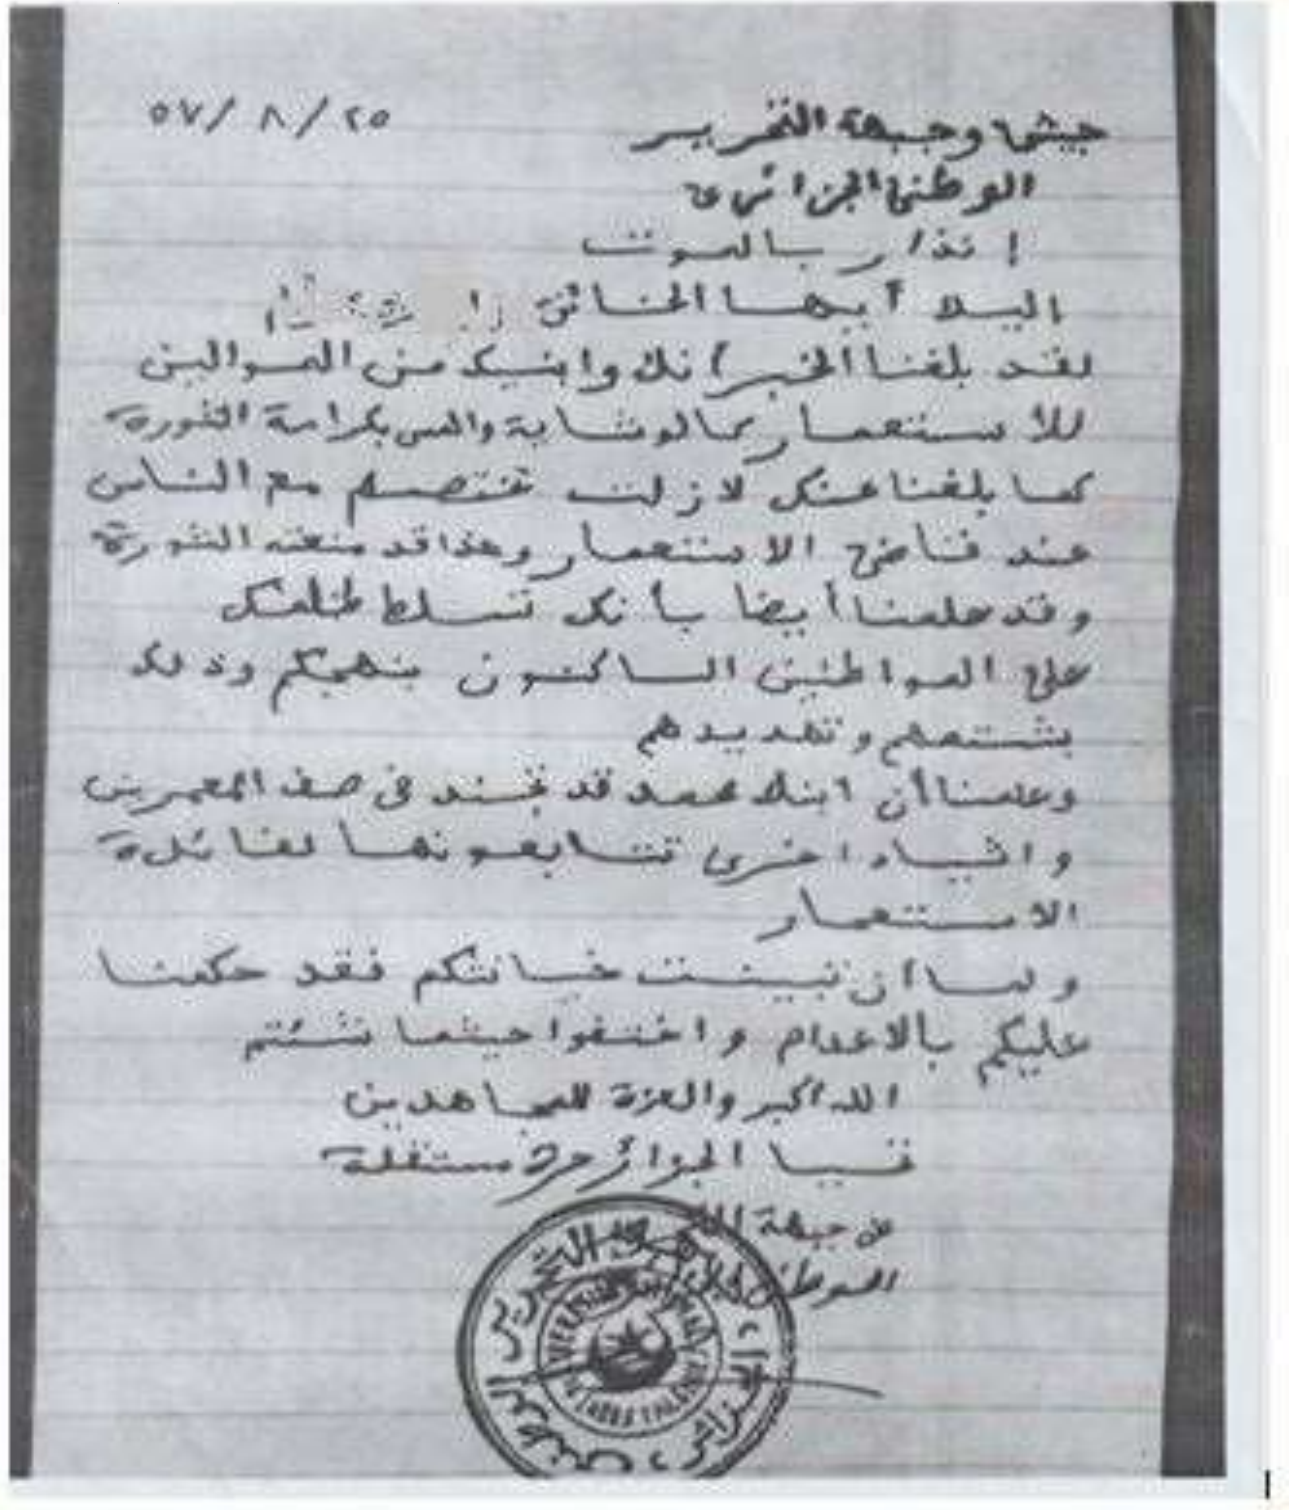 ٥٧/ ٨/ ٢٥
جيش وجبهة التحرير
الوطني الجزائري
إنذار بالموت
اليك أيها الخائن
لقد بلغنا الخبر أنك وابنيك من الموالين
للاستعمار كالوشاية والمس بكرامة الثورة
كما بلغنا عنك لازلت تختصم مع الناس
عند قاضي الاستعمار وهذا قد منعته الثورة
وقد علمنا أيضا بأنك تسلط ظلمك
على المواطنين الساكنون بنهجكم وذلك
بشتمهم وتهديدهم
وعلمنا أن ابنك محمد قد تجند في صف المعمرين
واشياء اخرى تتابعونها لفائدة
الاستعمار
ولما ان تبينت خيانتكم فقد حكمنا
عليكم بالاعدام واختفوا حيثما شئتم
الله أكبر والعزة للمجاهدين
تحيا الجزائر حرة مستقلة
عن جبهة
الوطني
جبهة التحرير الوطني الجزائري